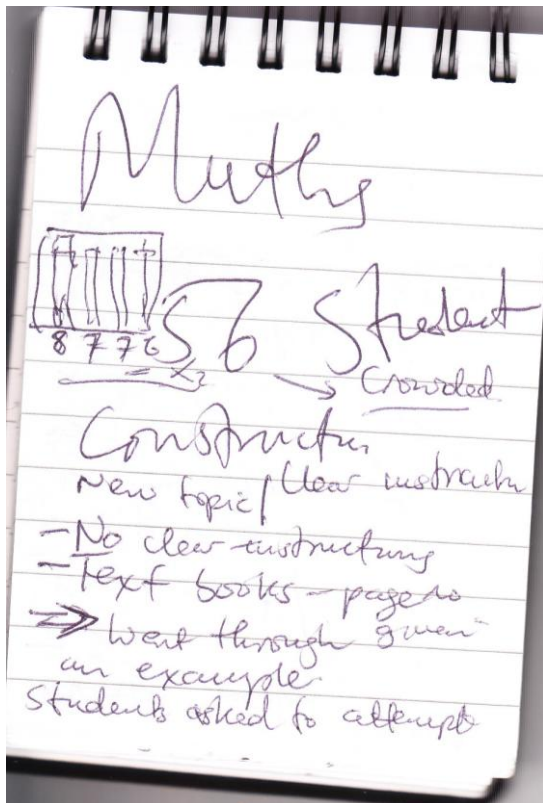 Maths
8 7 7 6
= x2
56 Student
→ Crowded
Construction
New topic / Clear instruction
- No clear instructions
- Text books - page no
⇒ Went through given
an example.
Students asked to attempt